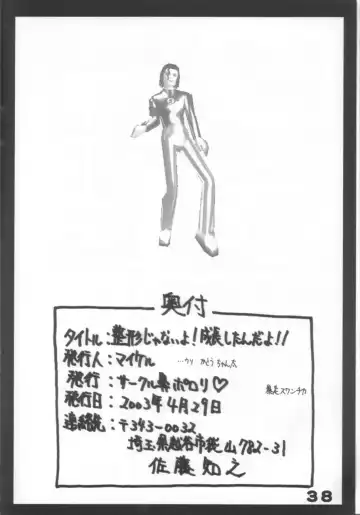 奥付
タイトル:整形じゃないよ!成長したんだよ!!
発行人:マイケル
発行:サークル鼻ポロリ♡
発行日:2003年4月29日
連絡先:〒343-0032
埼玉県越谷市袋山782-31
佐藤知之
38